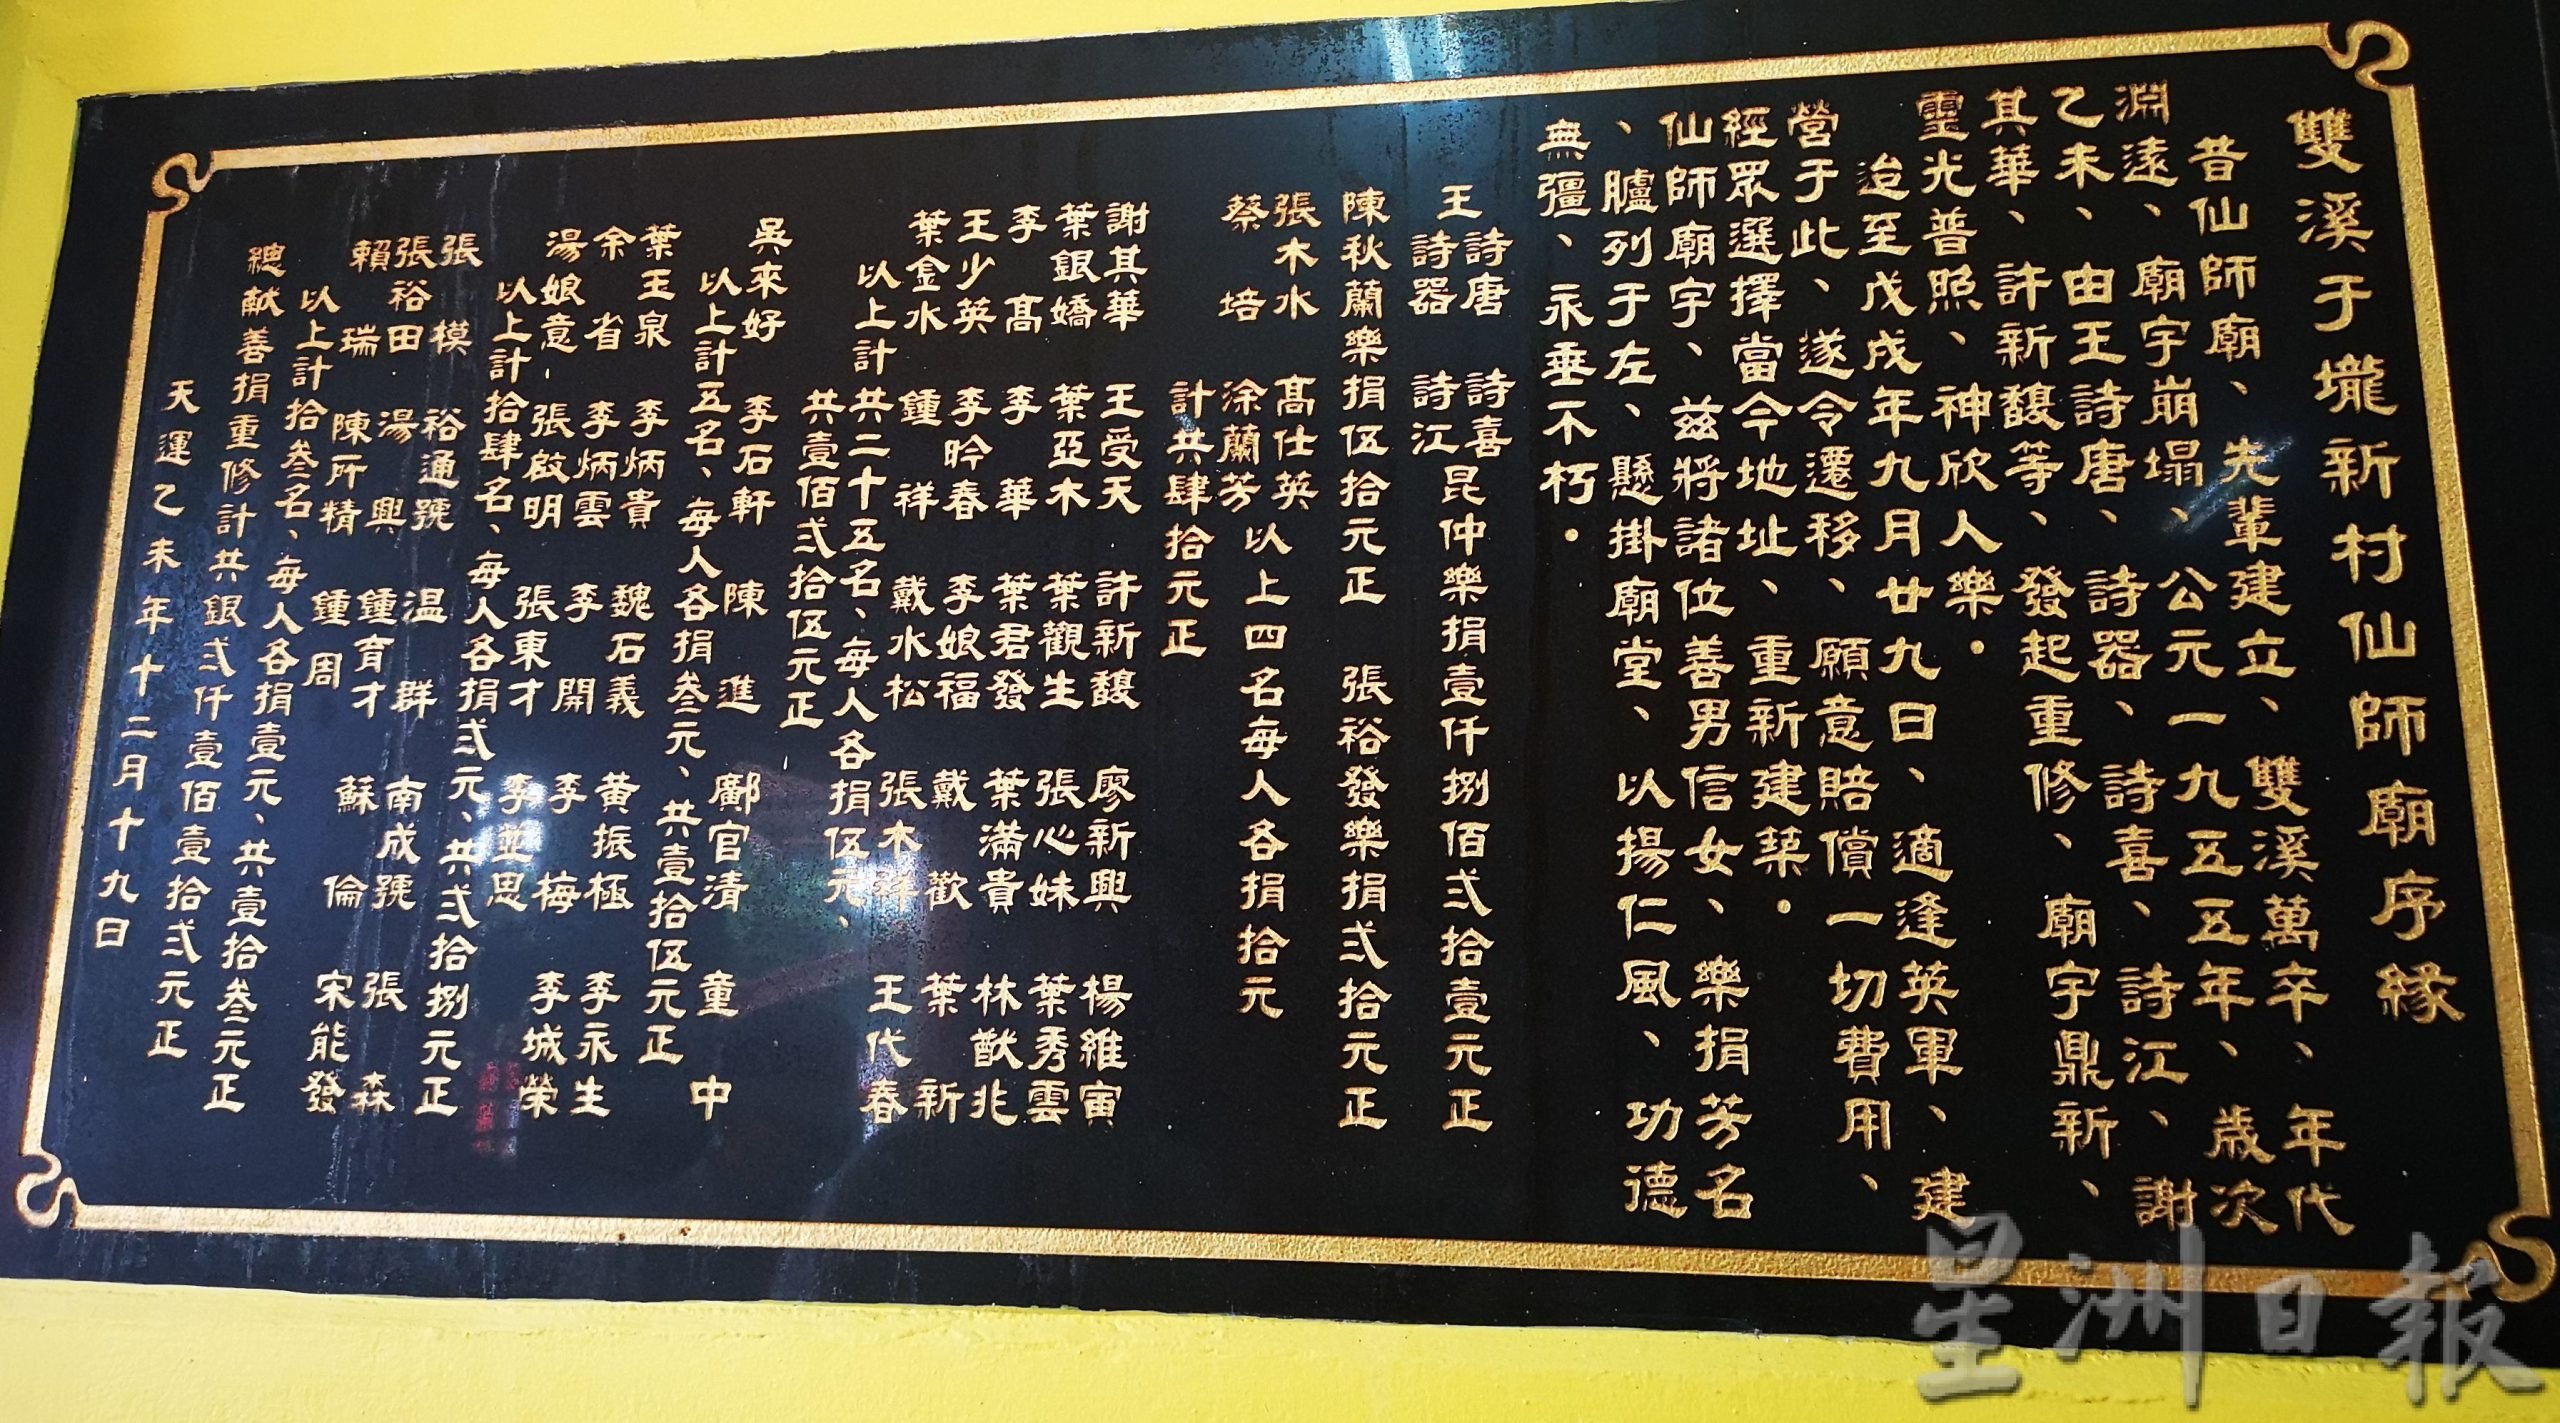 雙溪于壠新村仙師廟序緣
昔仙師廟、先輩建立、雙溪萬卒、年代
淵遠、廟宇崩塌、公元一九五五年、歲次
乙未、由王詩唐、詩器、詩喜、詩江、謝
其華、許新馥等、發起重修、廟宇鼎新、
靈光普照、神欣人樂。
迨至戊戌年九月廿九日、適逢英軍、建
營于此、遂令遷移、願意賠償一切費用、
經眾選擇當今地址、重新建築。
仙師廟宇、茲將諸位善男信女、樂捐芳名
、臚列于左、懸掛廟堂、以揚仁風、功德
無彊、永垂不朽。
王詩唐 詩喜
詩器 詩江 昆仲樂捐壹仟捌佰弍拾壹元正
陳秋蘭樂捐伍拾元正 張裕發樂捐弍拾元正
張木水 高仕英
蔡培 徐蘭芳 以上四名每人各捐拾元
計共肆拾元正
謝其華 王受天 許新馥 廖新興 楊維寅
葉銀嬌 葉亞木 葉觀生 張心妹 葉秀雲
李高 李華 葉君發 葉滿貴 林猷兆
王少英 李昑春 李娘福 戴歡 葉新
葉金水 鍾祥 戴水松 張木祥 王代春
以上計共二十五名、每人各捐伍元、
共壹佰弍拾伍元正
吳來好 李石軒 陳進 鄺官清 童中
以上計五名、每人各捐叁元、共壹拾伍元正
葉王泉 李炳貴 魏石義 黃振極 李永生
余省 李炳雲 李開 李梅 李城榮
湯娘意 張啟明 張東才 李並思
以上計拾肆名、每人各捐弍元、共弍拾捌元正
張模 裕通號 温群 南成號 張森
張裕田 湯興 鍾育才 蘇倫 宋能發
賴瑞 陳所精 鍾周
以上計拾叁名、每人各捐壹元、共壹拾叁元正
總献善捐重修計共銀弍仟壹佰壹拾弍元正
天運乙未年十二月十九日
星洲日報